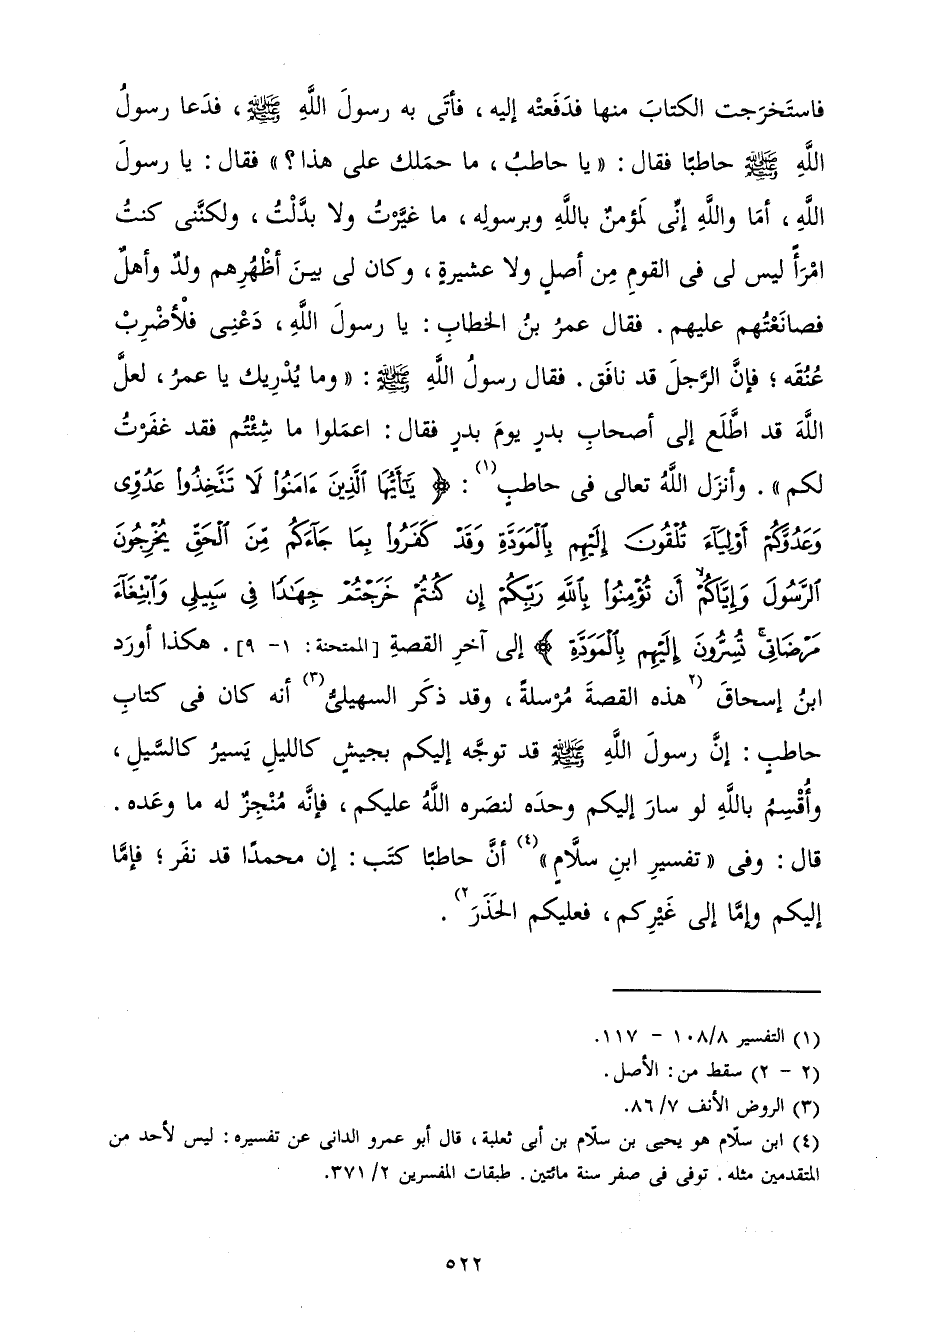 فاستَخرَجت الكتابَ منها فدَفَعتْه إليه، فأتَى به رسولَ اللَّهِ ﷺ، فدَعا رسولُ
اللَّهِ ﷺ حاطبًا فقال: «يا حاطبُ، ما حمَلك على هذا؟» فقال: يا رسولَ
اللَّهِ، أمَا واللَّهِ إنِّى لَمؤمنٌ باللَّهِ وبرسولِه، ما غيَّرْتُ ولا بدَّلْتُ، ولكنَّنى كنتُ
امْرَأً ليس لى فى القومِ مِن أصلٍ ولا عشيرةٍ، وكان لى بينَ أظْهُرِهم ولدٌ وأهلٌ
فصانَعْتُهم عليهم. فقال عمرُ بنُ الخطابِ: يا رسولَ اللَّهِ، دَعْنِى فلْأَضْرِبْ
عُنُقَه؛ فإنَّ الرَّجلَ قد نافَق. فقال رسولُ اللَّهِ ﷺ: «وما يُدْرِيك يا عمرُ، لعلَّ
اللَّهَ قد اطَّلَع إلى أصحابِ بدرٍ يومَ بدرٍ فقال: اعمَلوا ما شِئْتُم فقد غفَرْتُ
لكم». وأنزَل اللَّهُ تعالى فى حاطبٍ(١): ﴿يَٰٓأَيُّهَا ٱلَّذِينَ ءَامَنُوا۟ لَا تَتَّخِذُوا۟ عَدُوِّى
وَعَدُوَّكُمْ أَوْلِيَآءَ تُلْقُونَ إِلَيْهِم بِٱلْمَوَدَّةِ وَقَدْ كَفَرُوا۟ بِمَا جَآءَكُم مِّنَ ٱلْحَقِّ يُخْرِجُونَ
ٱلرَّسُولَ وَإِيَّاكُمْ أَن تُؤْمِنُوا۟ بِٱللَّهِ رَبِّكُمْ إِن كُنتُمْ خَرَجْتُمْ جِهَٰدًا فِى سَبِيلِى وَٱبْتِغَآءَ
مَرْضَاتِى تُسِرُّونَ إِلَيْهِم بِٱلْمَوَدَّةِ﴾ إلى آخرِ القصةِ [الممتحنة: ١- ٩]. هكذا أورَد
ابنُ إسحاقَ (٢هذه القصةَ مُرْسلةً، وقد ذكَر السهيلىُّ(٣) أنه كان فى كتابِ
حاطبٍ: إنَّ رسولَ اللَّهِ ﷺ قد توجَّه إليكم بجيشٍ كالليلِ يَسيرُ كالسَّيلِ،
وأُقْسِمُ باللَّهِ لو سارَ إليكم وحدَه لنصَره اللَّهُ عليكم، فإنَّه مُنْجِزٌ له ما وعَده.
قال: وفى «تفسيرِ ابنِ سلَّامٍ»(٤) أنَّ حاطبًا كتَب: إن محمدًا قد نفَر؛ فإمَّا
إليكم وإمَّا إلى غَيْرِكم، فعليكم الحَذَرَ٢).
(١) التفسير ٨/١٠٨ - ١١٧.
(٢ - ٢) سقط من: الأصل.
(٣) الروض الأنف ٧/ ٨٦.
(٤) ابن سلّام هو يحيى بن سلّام بن أبى ثعلبة، قال أبو عمرو الدانى عن تفسيره: ليس لأحد من
المتقدمين مثله. توفى فى صفر سنة مائتين. طبقات المفسرين ٢/ ٣٧١.
٥٢٢